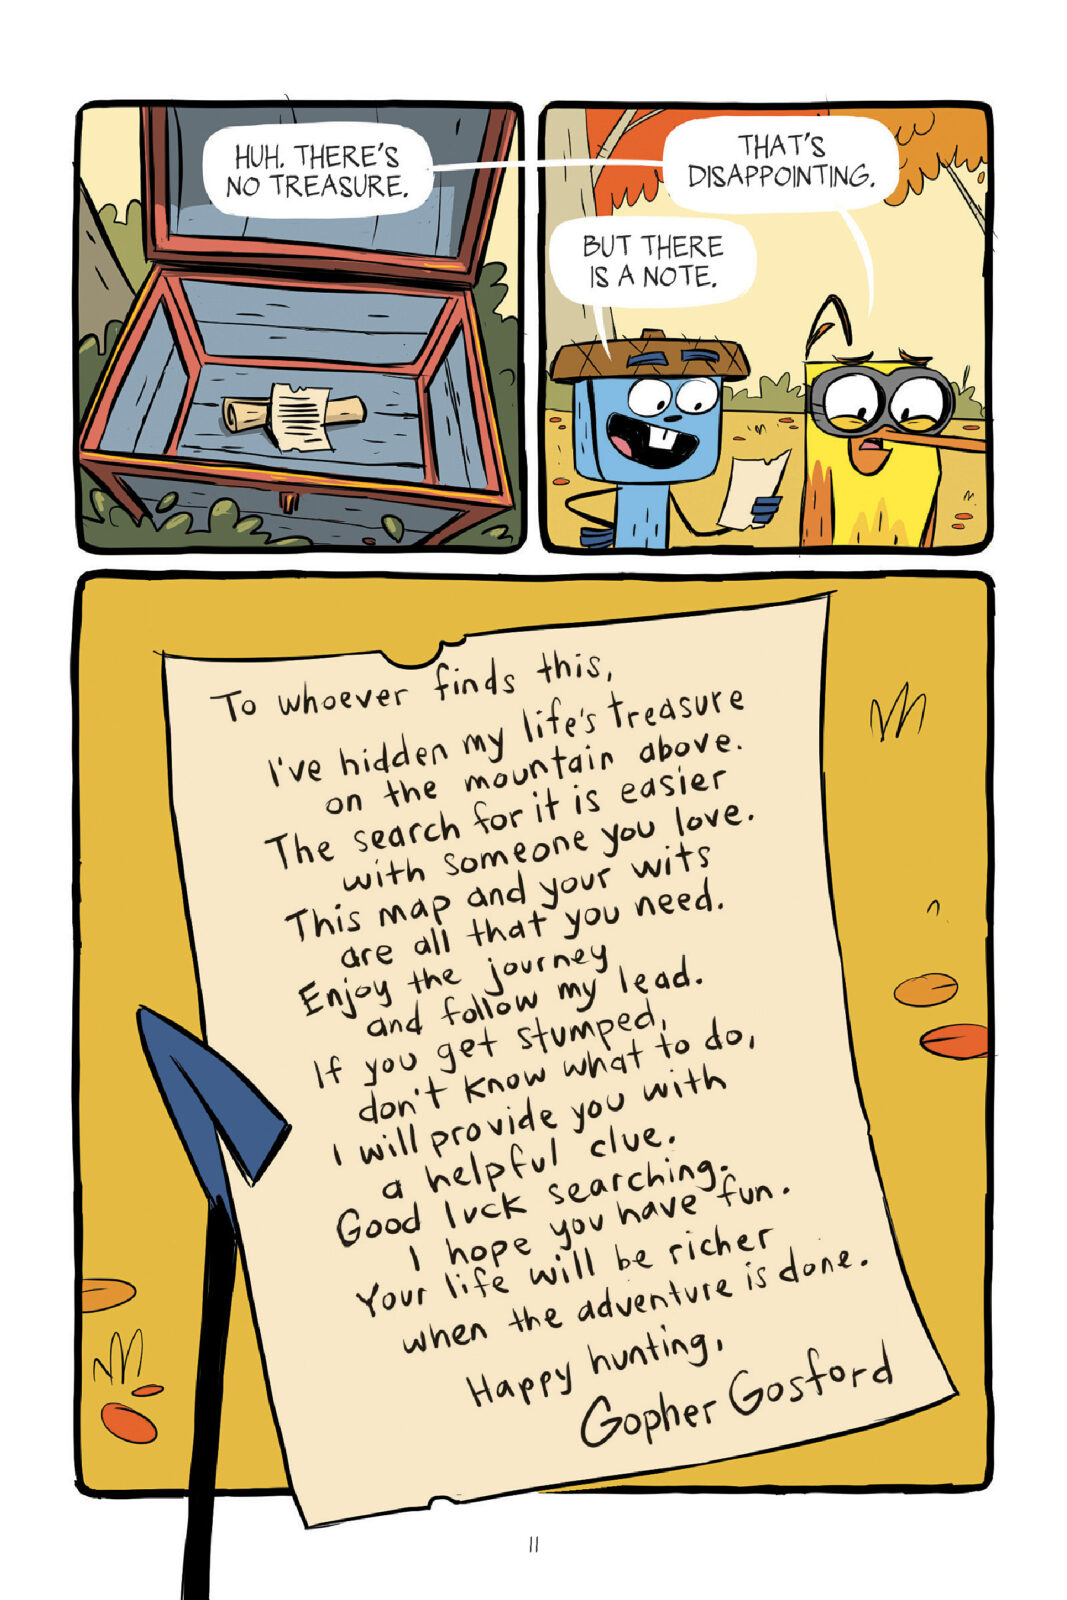 HUH. THERE'S
NO TREASURE.
THAT'S
DISAPPOINTING.
BUT THERE
IS A NOTE.
To whoever finds this,
I've hidden my life's treasure
on the mountain above.
The search for it is easier
with someone you love.
This map and your wits
are all that you need.
Enjoy the journey
and follow my lead.
If you get stumped,
don't know what to do,
I will provide you with
a helpful clue.
Good luck searching.
I hope you have fun.
Your life will be richer
when the adventure is done.
Happy hunting,
Gopher Gosford
11